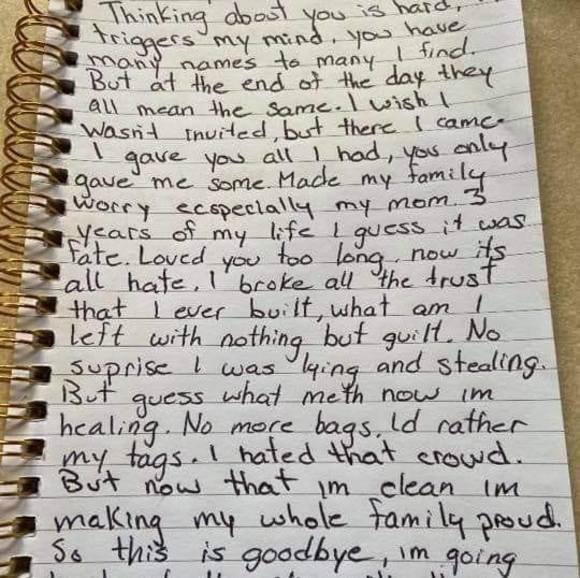 Thinking about you is hard,
triggers my mind. you have
many names to many I find.
But at the end of the day they
all mean the same. I wish I
wasn't invited, but there I came.
I gave you all I had, you only
gave me some. Made my family
worry ecspecially my mom. 3
years of my life I guess it was
fate. Loved you too long, now its
all hate. I broke all the trust
that I ever built, what am I
left with nothing but guilt. No
suprise I was lying and stealing.
But guess what meth now im
healing. No more bags, Id rather
my tags. I hated that crowd.
But now that im clean im
making my whole family proud.
So this is goodbye, im going